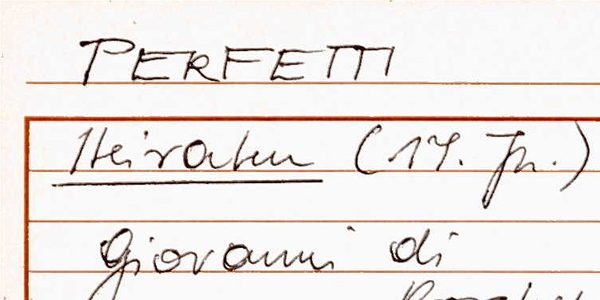 PERFETTI
Heiraten (17. Jh.)
Giovanni di